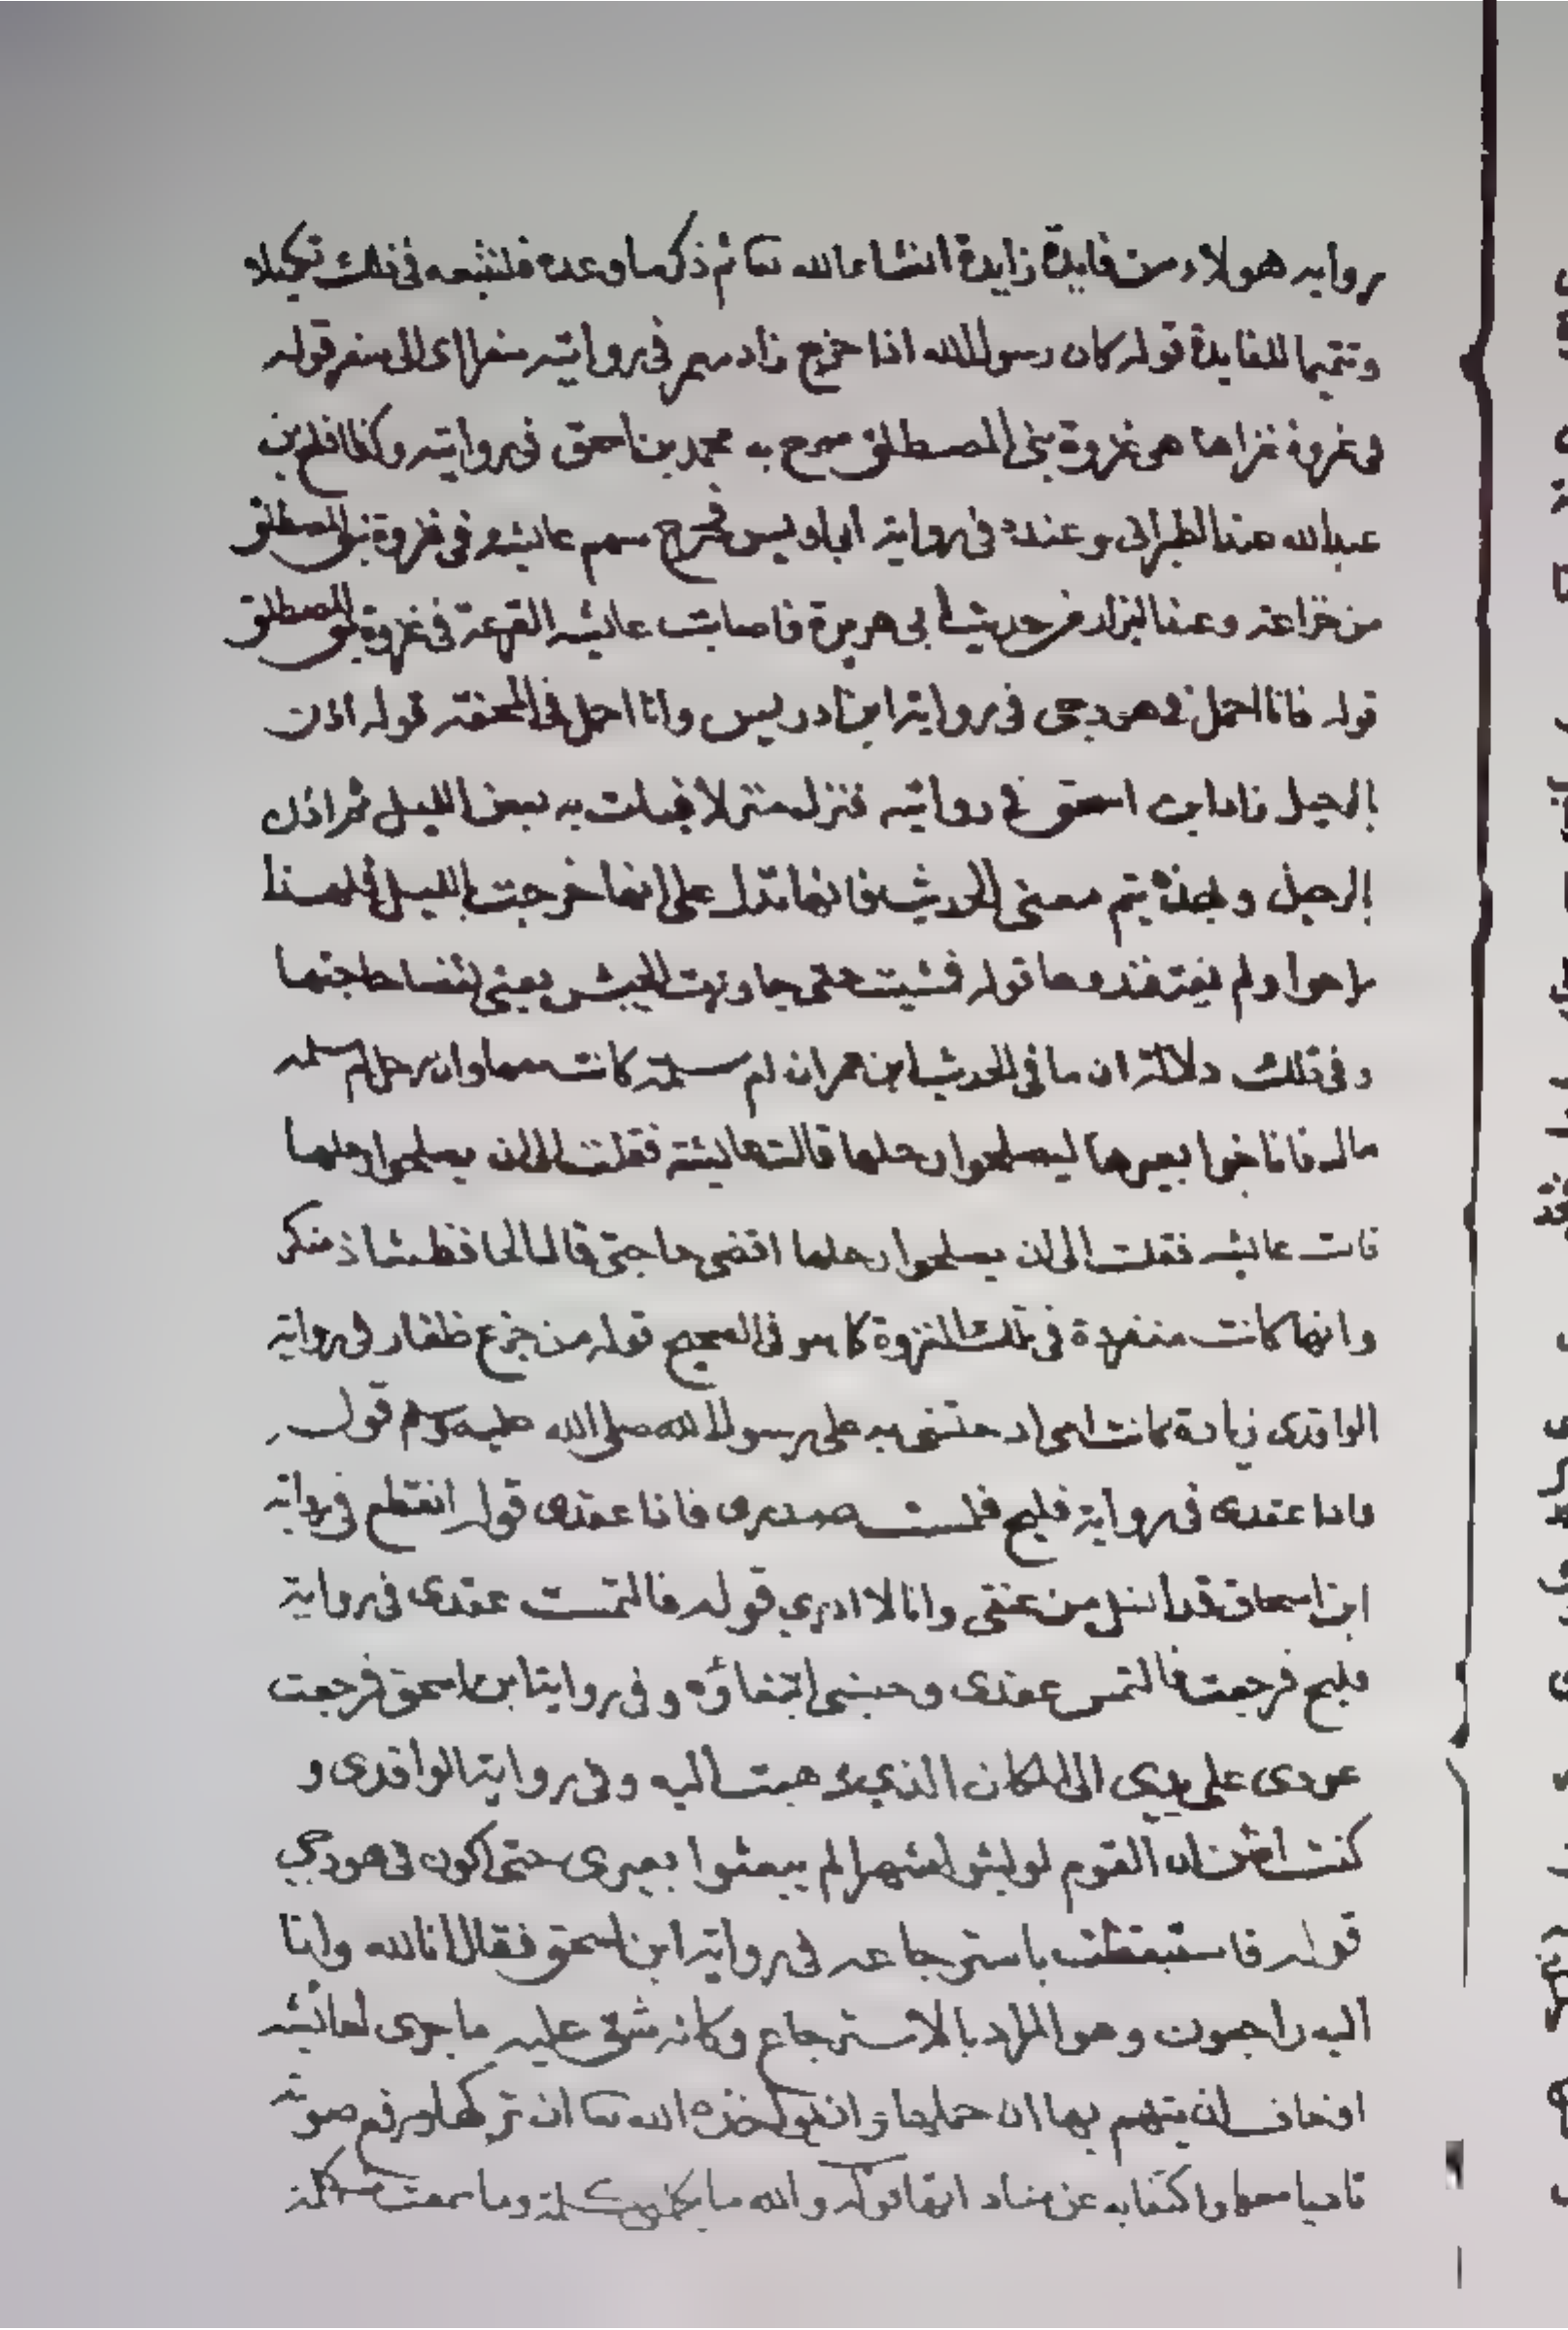 رواية هولاء من فايدة زايدة انشاء الله تعا ثم ذكر ما وعده فلنتبعه في ذلك تكميلا
وتتميما للفايدة قوله كان رسول الله اذا خرج زاد معمر في روايته سفرا اى الى سفر قوله
في غزوة غزاها هي غزوة بني المصطلق صرح به محمد بن اسحق في روايته وكذا افلح بن
عبد الله عند الطبراني وعنده في رواية ابي اويس فخرج سهم عايشه في غزوة بني المصطلق
من خزاعة وعند البزار من حديث ابي هريرة فاصابت عايشه القرعة في غزوة بني المصطلق
قوله فانا احمل في هودجي في رواية ابن ادريس وانا احمل في المحفة قوله اذن
بالرحيل زاد ابن اسحق في روايته فنزل منزلا فبات به بعض الليل ثم اذن
بالرحيل وبهذه يتم معنى الحديث فانها تدل على انها خرجت بالليل فلهذا
راحوا ولم يفتقدوها قوله فمشيت حتى جاوزت الجيش يعني لقضا حاجتها
وفي ذلك دلالة ان ما في الحديث ابن عمران ام سلمة كانت معها وان رحل ام سلمه
مال فاناخوا بعيرها ليصلحوا رحلها قالت عايشة فقلت الى ان يصلحوا رحلها
قالت عايشه فقلت الى ان يصلحوا رحلها اقضي حاجتي قال الحافظ شاذ منكر
وانها كانت منفردة في تلك الغزوة كما هو في الصحيح قوله من جزع ظفار في رواية
الواقدى زيادة كانت امي اد خلتني به على رسول الله صلى الله عليه وسلم قوله
فاذا عقدى في رواية فليح فلمست صدرى فاذا عقدى قوله انقطع في رواية
ابن اسحاق قد انسل من عنقي وانا لا ادري قوله فالتمست عقدى في رواية
فليح فرجعت فالتمس عقدى وحبسني ابتغاؤه وفي رواية ابن اسحق فرجعت
عودى على بدى الى المكان الذي ذهبت اليه وفي رواية الواقدى و
كنت اظن ان القوم لو لبثوا شهرا لم يبعثوا بعيرى حتى اكون في هودجي
قوله فاستيقظت باسترجاعه في رواية ابن اسحق فقال انا لله وانا
اليه راجعون وهو المراد بالاسترجاع وكانه شق عليه ما جرى لعائشه
او خاف ان يتهم بها ان حملها وان يواخذه الله تعا ان تركها ورفع صوته
تادبا معها واكتفا به عن مناداتها قوله والله ما يكلمني كلمة وما سمعت منه كلمة